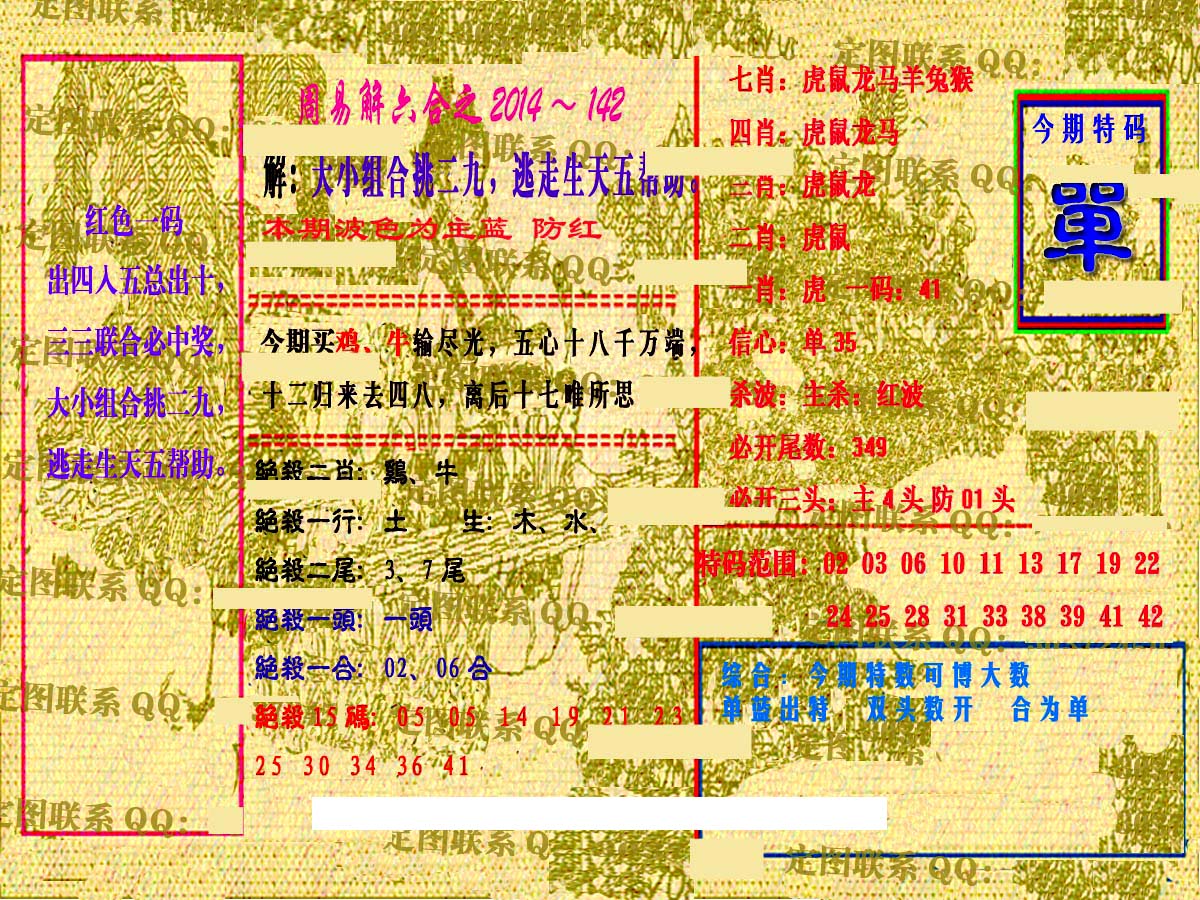 周易解六合之 2014 ~ 142
解：大小组合挑二九，逃走生天五帮助。
本期波色为主蓝 防红
红色一码
出四入五总出十，
三三联合必中奖，
大小组合挑二九，
逃走生天五帮助。
今期买鸡、牛输尽光，五心十八千万端，
十二归来去四八，离后十七唯所思
絕殺二肖：鷄、牛
絕殺一行：土 生：木、水、
絕殺二尾：3、7 尾
絕殺一頭：一頭
絕殺一合：02、06 合
絕殺 15 碼：05 05 14 19 21 23
25 30 34 36 41
七肖：虎鼠龙马羊兔猴
四肖：虎鼠龙马
三肖：虎鼠龙
二肖：虎鼠
一肖：虎 一码：41
信心：单 35
杀波：主杀：红波
必开尾数：349
必开三头：主 4 头 防 01 头
今期特码
單
特码范围：02 03 06 10 11 13 17 19 22
24 25 28 31 33 38 39 41 42
综合：今期特数可博大数
单蓝出特 双头数开 合为单
定图联系 QQ：